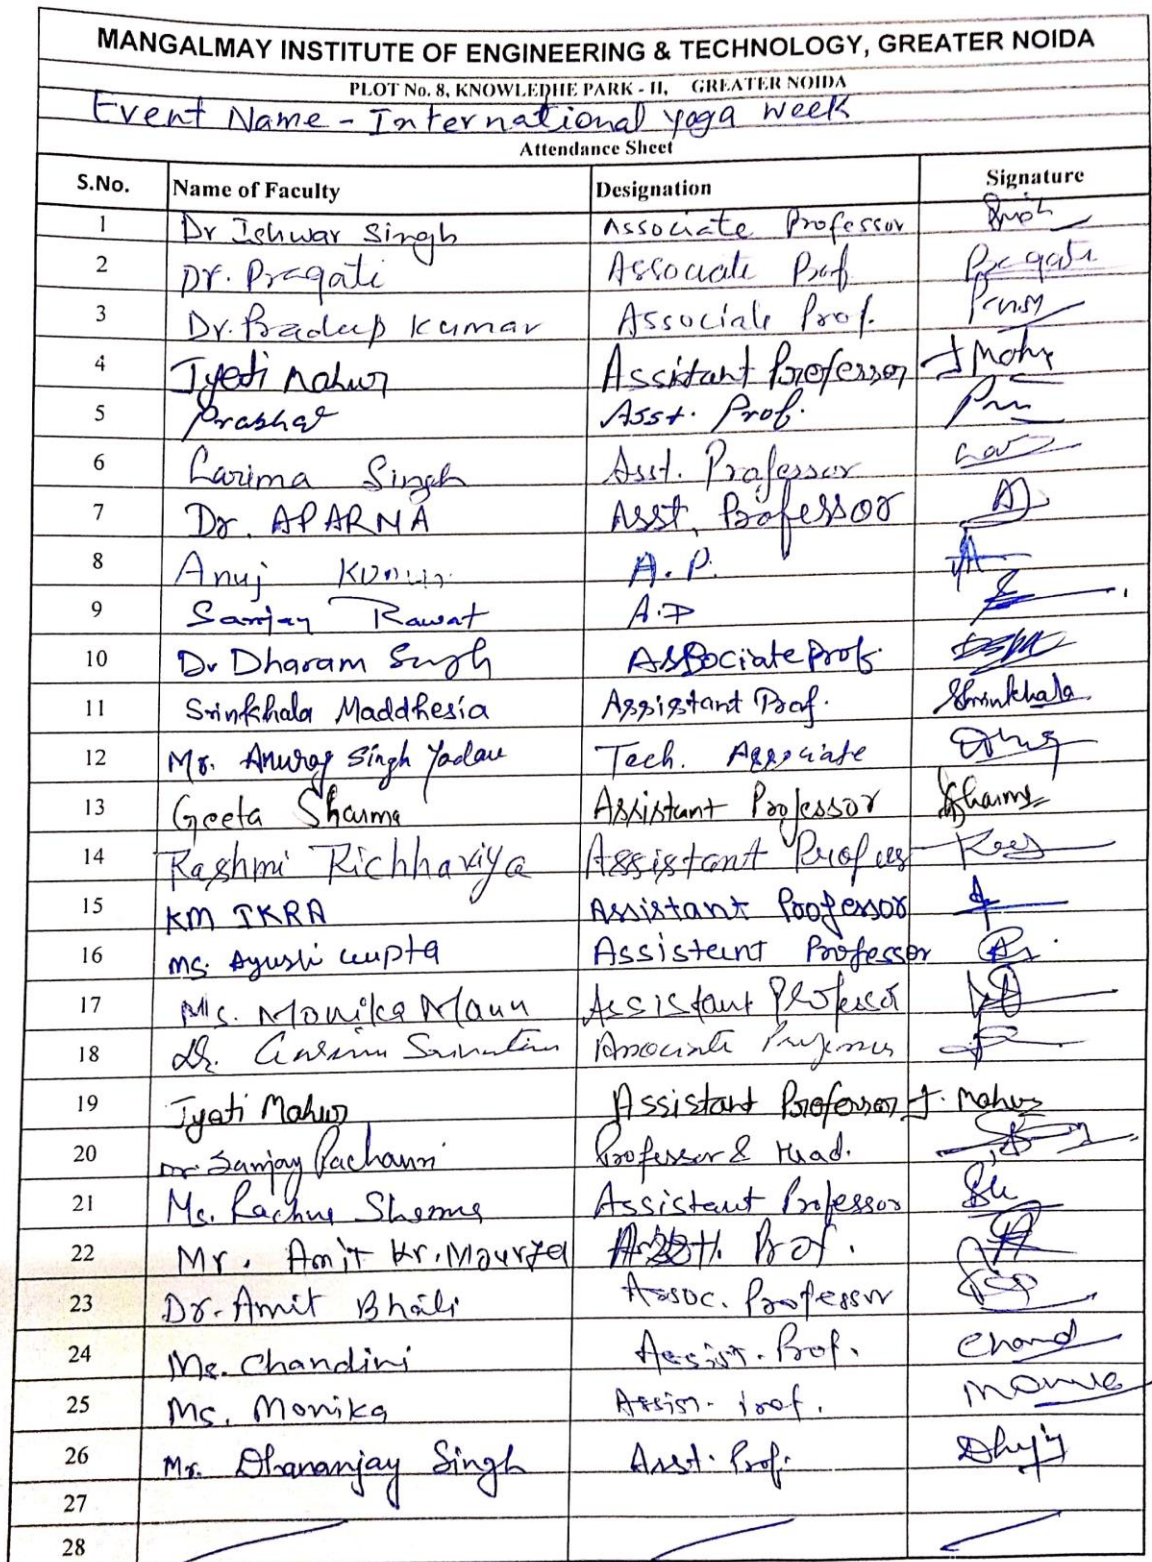 MANGALMAY INSTITUTE OF ENGINEERING & TECHNOLOGY, GREATER NOIDA
PLOT No. 8, KNOWLEDHE PARK - II, GREATER NOIDA
Event Name - International yoga week
Attendance Sheet
S.No. Name of Faculty Designation Signature
1 Dr Ishwar Singh Associate Professor
2 Dr. Pragati Associate Prof. Pragati
3 Dr. Pradeep Kumar Associate Prof.
4 Jyoti Mahur Assistant Professor
5 Prabhat Asst. Prof.
6 Garima Singh Asst. Professor
7 Dr. APARNA Asst. Professor
8 Anuj Kumar A.P.
9 Sanjay Rawat A.P
10 Dr Dharam Singh Associate Prof.
11 Srinkhala Maddhesia Assistant Prof. Shrinkhala
12 Mr. Anurag Singh Yadav Tech. Associate
13 Geeta Sharma Assistant Professor Sharma
14 Rashmi Richhariya Assistant
15 KM IKRA Assistant Professor
16 Ms. Ayushi Gupta Assistant Professor
17 Ms. Monika Maun Assistant Professor
18 Dr. Associate Professor
19 Jyoti Mahur Assistant Professor J. Mahur
20 Dr Sanjay Pachauri Professor & Head.
21 Ms. Rachna Sharma Assistant Professor
22 Mr. Amit Kr. Maurya Prof.
23 Dr. Amit Bhati Assoc. Professor
24 Ms. Chandini Assist. Prof. Chand
25 Ms. Monika Assis. Prof.
26 Mr. Dhananjay Singh Asst. Prof.
27
28